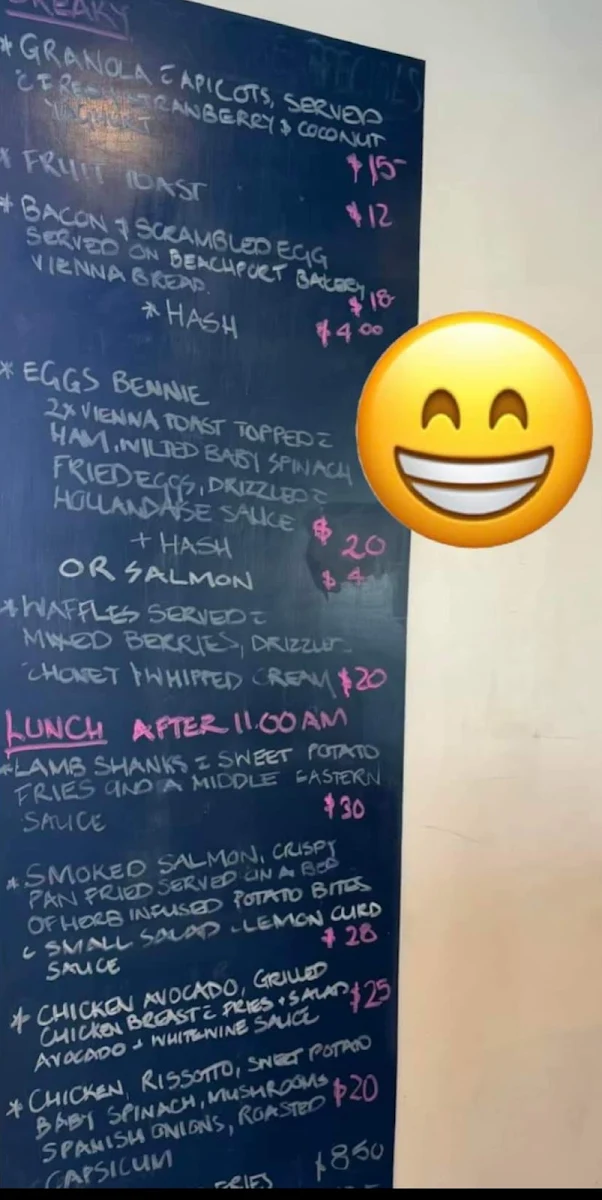 BREAKY
SPECIALS
* GRANOLA C APICOTS, SERVED
CRANBERRY & COCONUT
YOGHURT
$15-
* FRUIT TOAST
$12
* BACON & SCRAMBLED EGG
SERVED ON BEACHPORT BAKERY
VIENNA BREAD.
$18-
* HASH $4.00
* EGGS BENNIE
2X VIENNA TOAST TOPPED C
HAM, WILTED BABY SPINACH
FRIED EGGS, DRIZZLED C
HOLLANDAISE SAUCE
$20
+ HASH
OR SALMON $4
* WAFFLES SERVED C
MIXED BERRIES, DRIZZLE
C HONEY & WHIPPED CREAM $20
LUNCH AFTER 11.00AM
* LAMB SHANKS C SWEET POTATO
FRIES AND A MIDDLE EASTERN
SAUCE $30
* SMOKED SALMON, CRISPY
PAN FRIED SERVED ON A BED
OF HERB INFUSED POTATO BITES
C SMALL SALAD & LEMON CURD
SAUCE $28
* CHICKEN AVOCADO, GRILLED
CHICKEN BREAST C FRIES + SALAD $25
AVOCADO + WHITEWINE SAUCE
* CHICKEN, RISSOTTO, SWEET POTATO
BABY SPINACH, MUSHROOMS $20
SPANISH ONIONS, ROASTED
CAPSICUM
FRIES $8.50